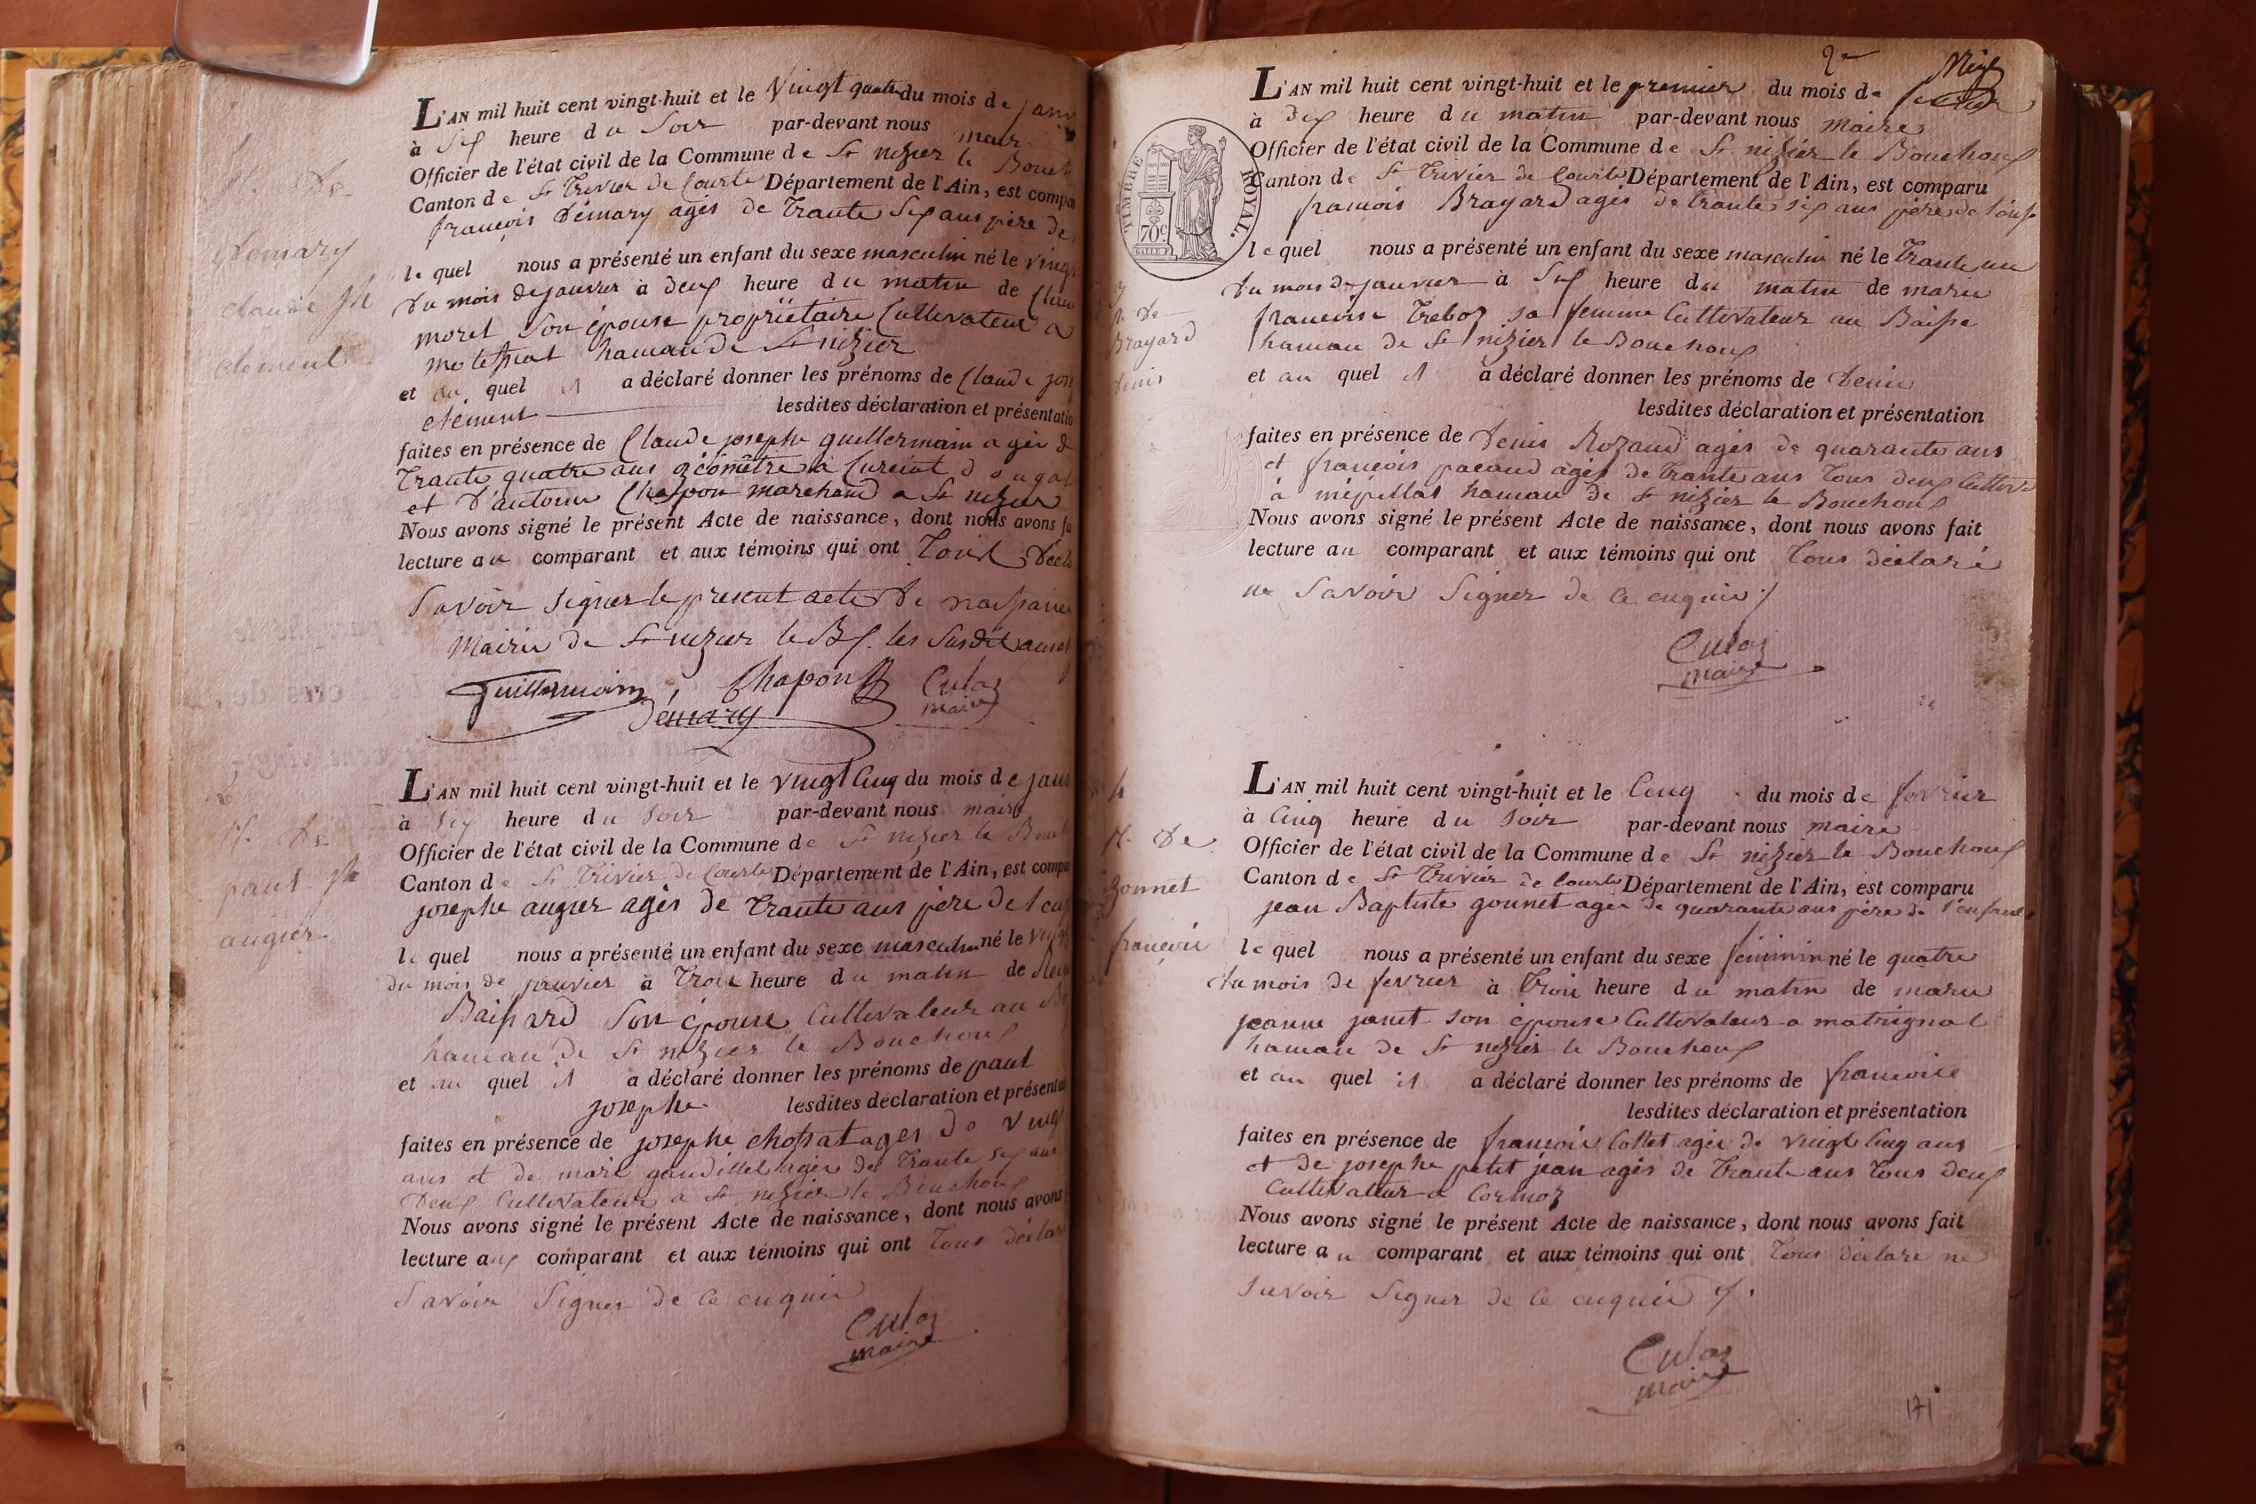 N. De
Demary
claude jh
clement
L'AN mil huit cent vingt-huit et le Vingt quatre du mois de janv
à six heure du Soir par-devant nous maire
Officier de l'état civil de la Commune de St nizier le Bouch
Canton de St Trivier de Courte Département de l'Ain, est compa
françois Démary agés de Trante six ans père de
le quel nous a présenté un enfant du sexe masculin né le vingt
du mois de janvier à deux heure du matin de Clau
morel Son épouse propriétaire Cultivateur a
hamau de St nizier
et au quel il a déclaré donner les prénoms de Claude jos
clément lesdites déclaration et présentatio
faites en présence de Claude josephe guillermain agés de
Trante quatre ans géomêtre à Curciat dongal
et D'antoine Chapon marchand a St nizier
Nous avons signé le présent Acte de naissance, dont nous avons fa
lecture au comparant et aux témoins qui ont Tous Décla
Savoir signer le present acte De naissance
Mairie de St nizier le Bx. les Susdit an
Guillermain Chapon Culaz
Démary maire
N. De
paul jh
augier
L'AN mil huit cent vingt-huit et le vingt Cinq du mois de janv
à six heure du soir par-devant nous maire
Officier de l'état civil de la Commune de St nizier le Bouch
Canton de St Trivier de Courte Département de l'Ain, est compa
josephe augier agés de Trante ans père de l'en
le quel nous a présenté un enfant du sexe masculin né le vingt
du mois de janvier à Trois heure du matin de
Baissard Son épouse Cultivateur au
hamau de St nizier le Bouchoux
et au quel il a déclaré donner les prénoms de paul
josephe lesdites déclaration et présentat
faites en présence de josephe chossat agés de vingt
ans et de marie gaudillet agés de Trante six ans
Deux Cultivateur a St nizier le Bouchoux
Nous avons signé le présent Acte de naissance, dont nous avons
lecture aux comparant et aux témoins qui ont Tous déclaré
Savoir Signer de ce enquis
Culaz
maire
2e
TIMBRE ROYAL.
70c
N. De
Brayard
denis
L'AN mil huit cent vingt-huit et le premier du mois de fevrier
à dix heure du matin par-devant nous maire
Officier de l'état civil de la Commune de St nizier le Bouchoux
Canton de St Trivier de Courte Département de l'Ain, est comparu
françois Brayard agés de trante six ans père de l'enft
le quel nous a présenté un enfant du sexe masculin né le Trante un
du mois de janvier à six heure du matin de marie
francoise Treboz sa femme Cultivateur au Baisse
hamau de St nizier le Bouchoux
et au quel il a déclaré donner les prénoms de Denis
lesdites déclaration et présentation
faites en présence de Denis Rozand agés de quarante ans
et françois pacaud agés de trante ans Tous deux Cultiv
à hamau de St nizier le Bouchoux
Nous avons signé le présent Acte de naissance, dont nous avons fait
lecture au comparant et aux témoins qui ont Tous déclaré
ne Savoir Signer de ce enquis
Culaz
maire
4
N. De
gonnet
francoise
L'AN mil huit cent vingt-huit et le Cinq du mois de fevrier
à Cinq heure du soir par-devant nous maire
Officier de l'état civil de la Commune de St nizier le Bouchoux
Canton de St Trivier de Courte Département de l'Ain, est comparu
jean Baptiste gonnet agés de quarante ans père de l'enfant
le quel nous a présenté un enfant du sexe féminin né le quatre
du mois de fevrier à Trois heure du matin de marie
jeanne janet son épouse Cultivateur a matrignat
hamau de St nizier le Bouchoux
et au quel il a déclaré donner les prénoms de francoise
lesdites déclaration et présentation
faites en présence de francois Collet agés de vingt Cinq ans
et de josephe petit jean agés de Trante ans Tous deux
Cultivateur a Cormoz
Nous avons signé le présent Acte de naissance, dont nous avons fait
lecture au comparant et aux témoins qui ont Tous déclare ne
savoir Signer de ce enquis
Culaz
maire
171